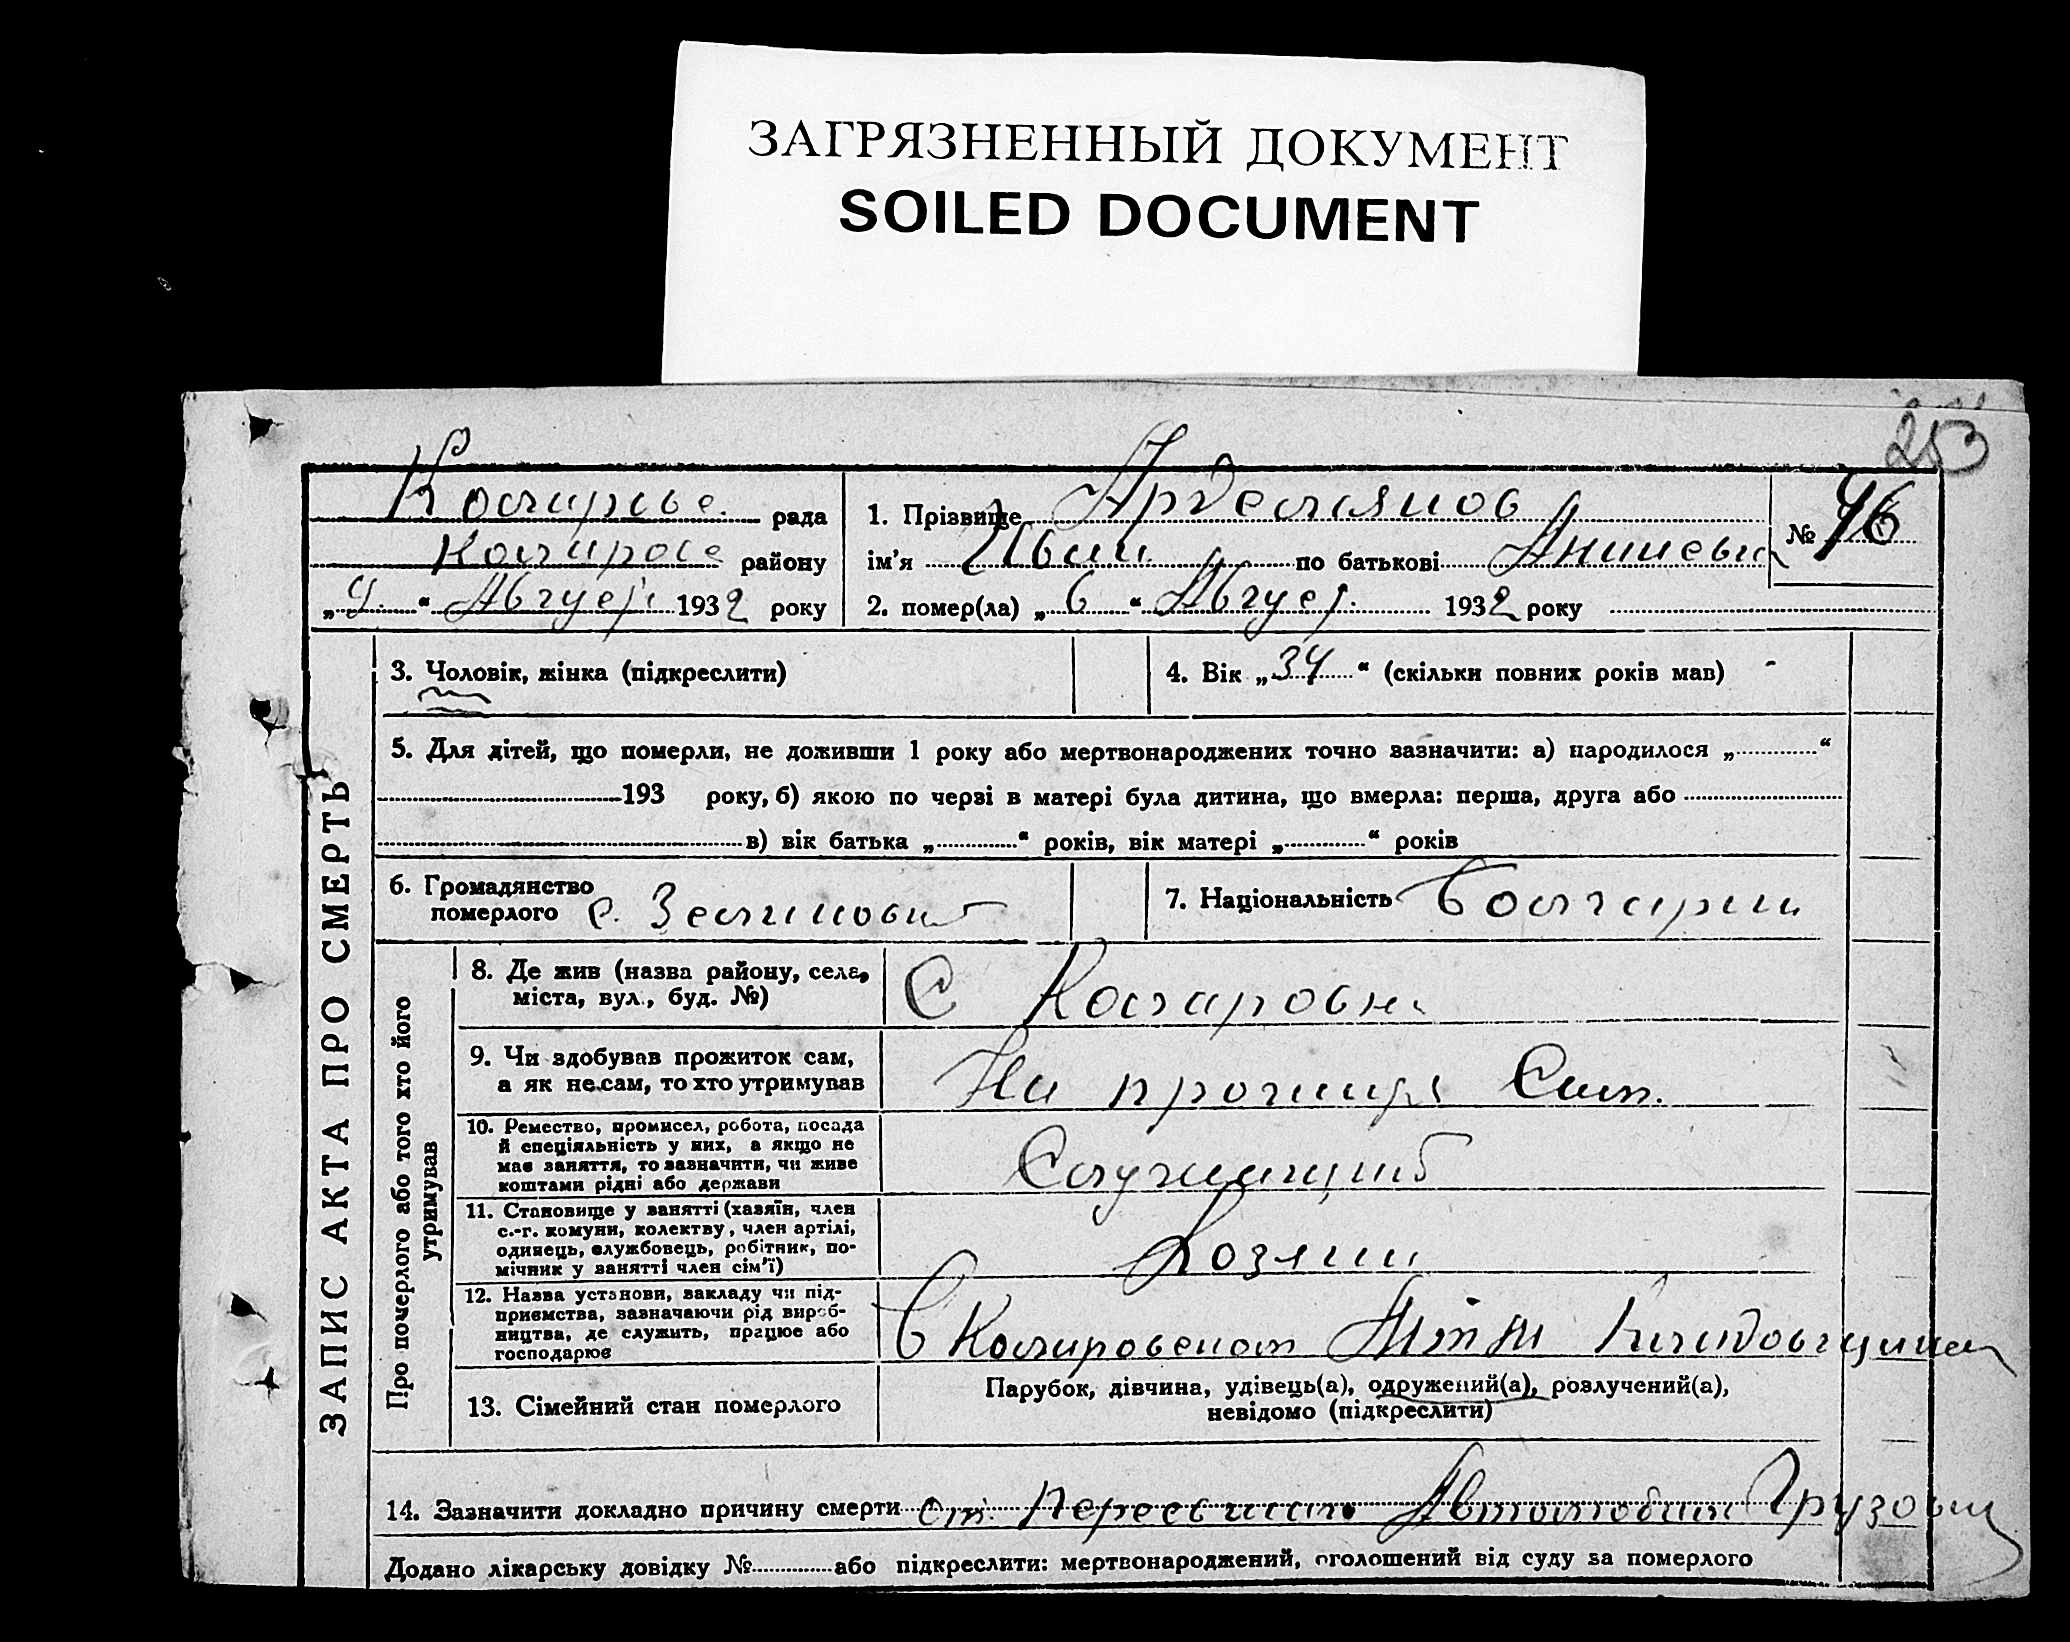 ЗАГРЯЗНЕННЫЙ ДОКУМЕНТ
SOILED DOCUMENT
253
рада
района
району
"9." Август 1932 року
1. Прізвище
№ 46
ім'я Иван по батькові
2. помер(ла) „6" Август. 1932 року
ЗАПИС АКТА ПРО СМЕРТЬ
3. Чоловік, жінка (підкреслити)
4. Вік „34" (скільки повних років мав)
5. Для дітей, що померли, не доживши 1 року або мертвонароджених точно зазначити: а) народилося „ "
193 року, б) якою по черзі в матері була дитина, що вмерла: перша, друга або
в) вік батька „ " років, вік матері „ " років
6. Громадянство
померлого с.
7. Національність Болгарин
Про померлого або того хто його
утримував
8. Де жив (назва району, села,
міста, вул., буд. №)
С
9. Чи здобував прожиток сам,
а як не сам, то хто утримував
На Сам.
10. Ремество, промисел, робота, посада
й спеціяльність у них, а якщо не
має заняття, то зазначити, чи живе
коштами рідні або держави
Служащий
11. Становище у занятті (хазяїн, член
с.-г. комуни, колективу, член артілі,
одинець, службовець, робітник, по-
мічник у занятті член сім'ї)
Хозяин
12. Назва установи, закладу чи під-
приємства, зазначаючи рід вироб-
ництва, де служить, працює або
господарює
В
13. Сімейний стан померлого
Парубок, дівчина, удівець(а), одружений(а), розлучений(а),
невідомо (підкреслити)
14. Зазначити докладно причину смерти от Автомобил Грузовик
Додано лікарську довідку № або підкреслити: мертвонароджений, оголошений від суду за померлого